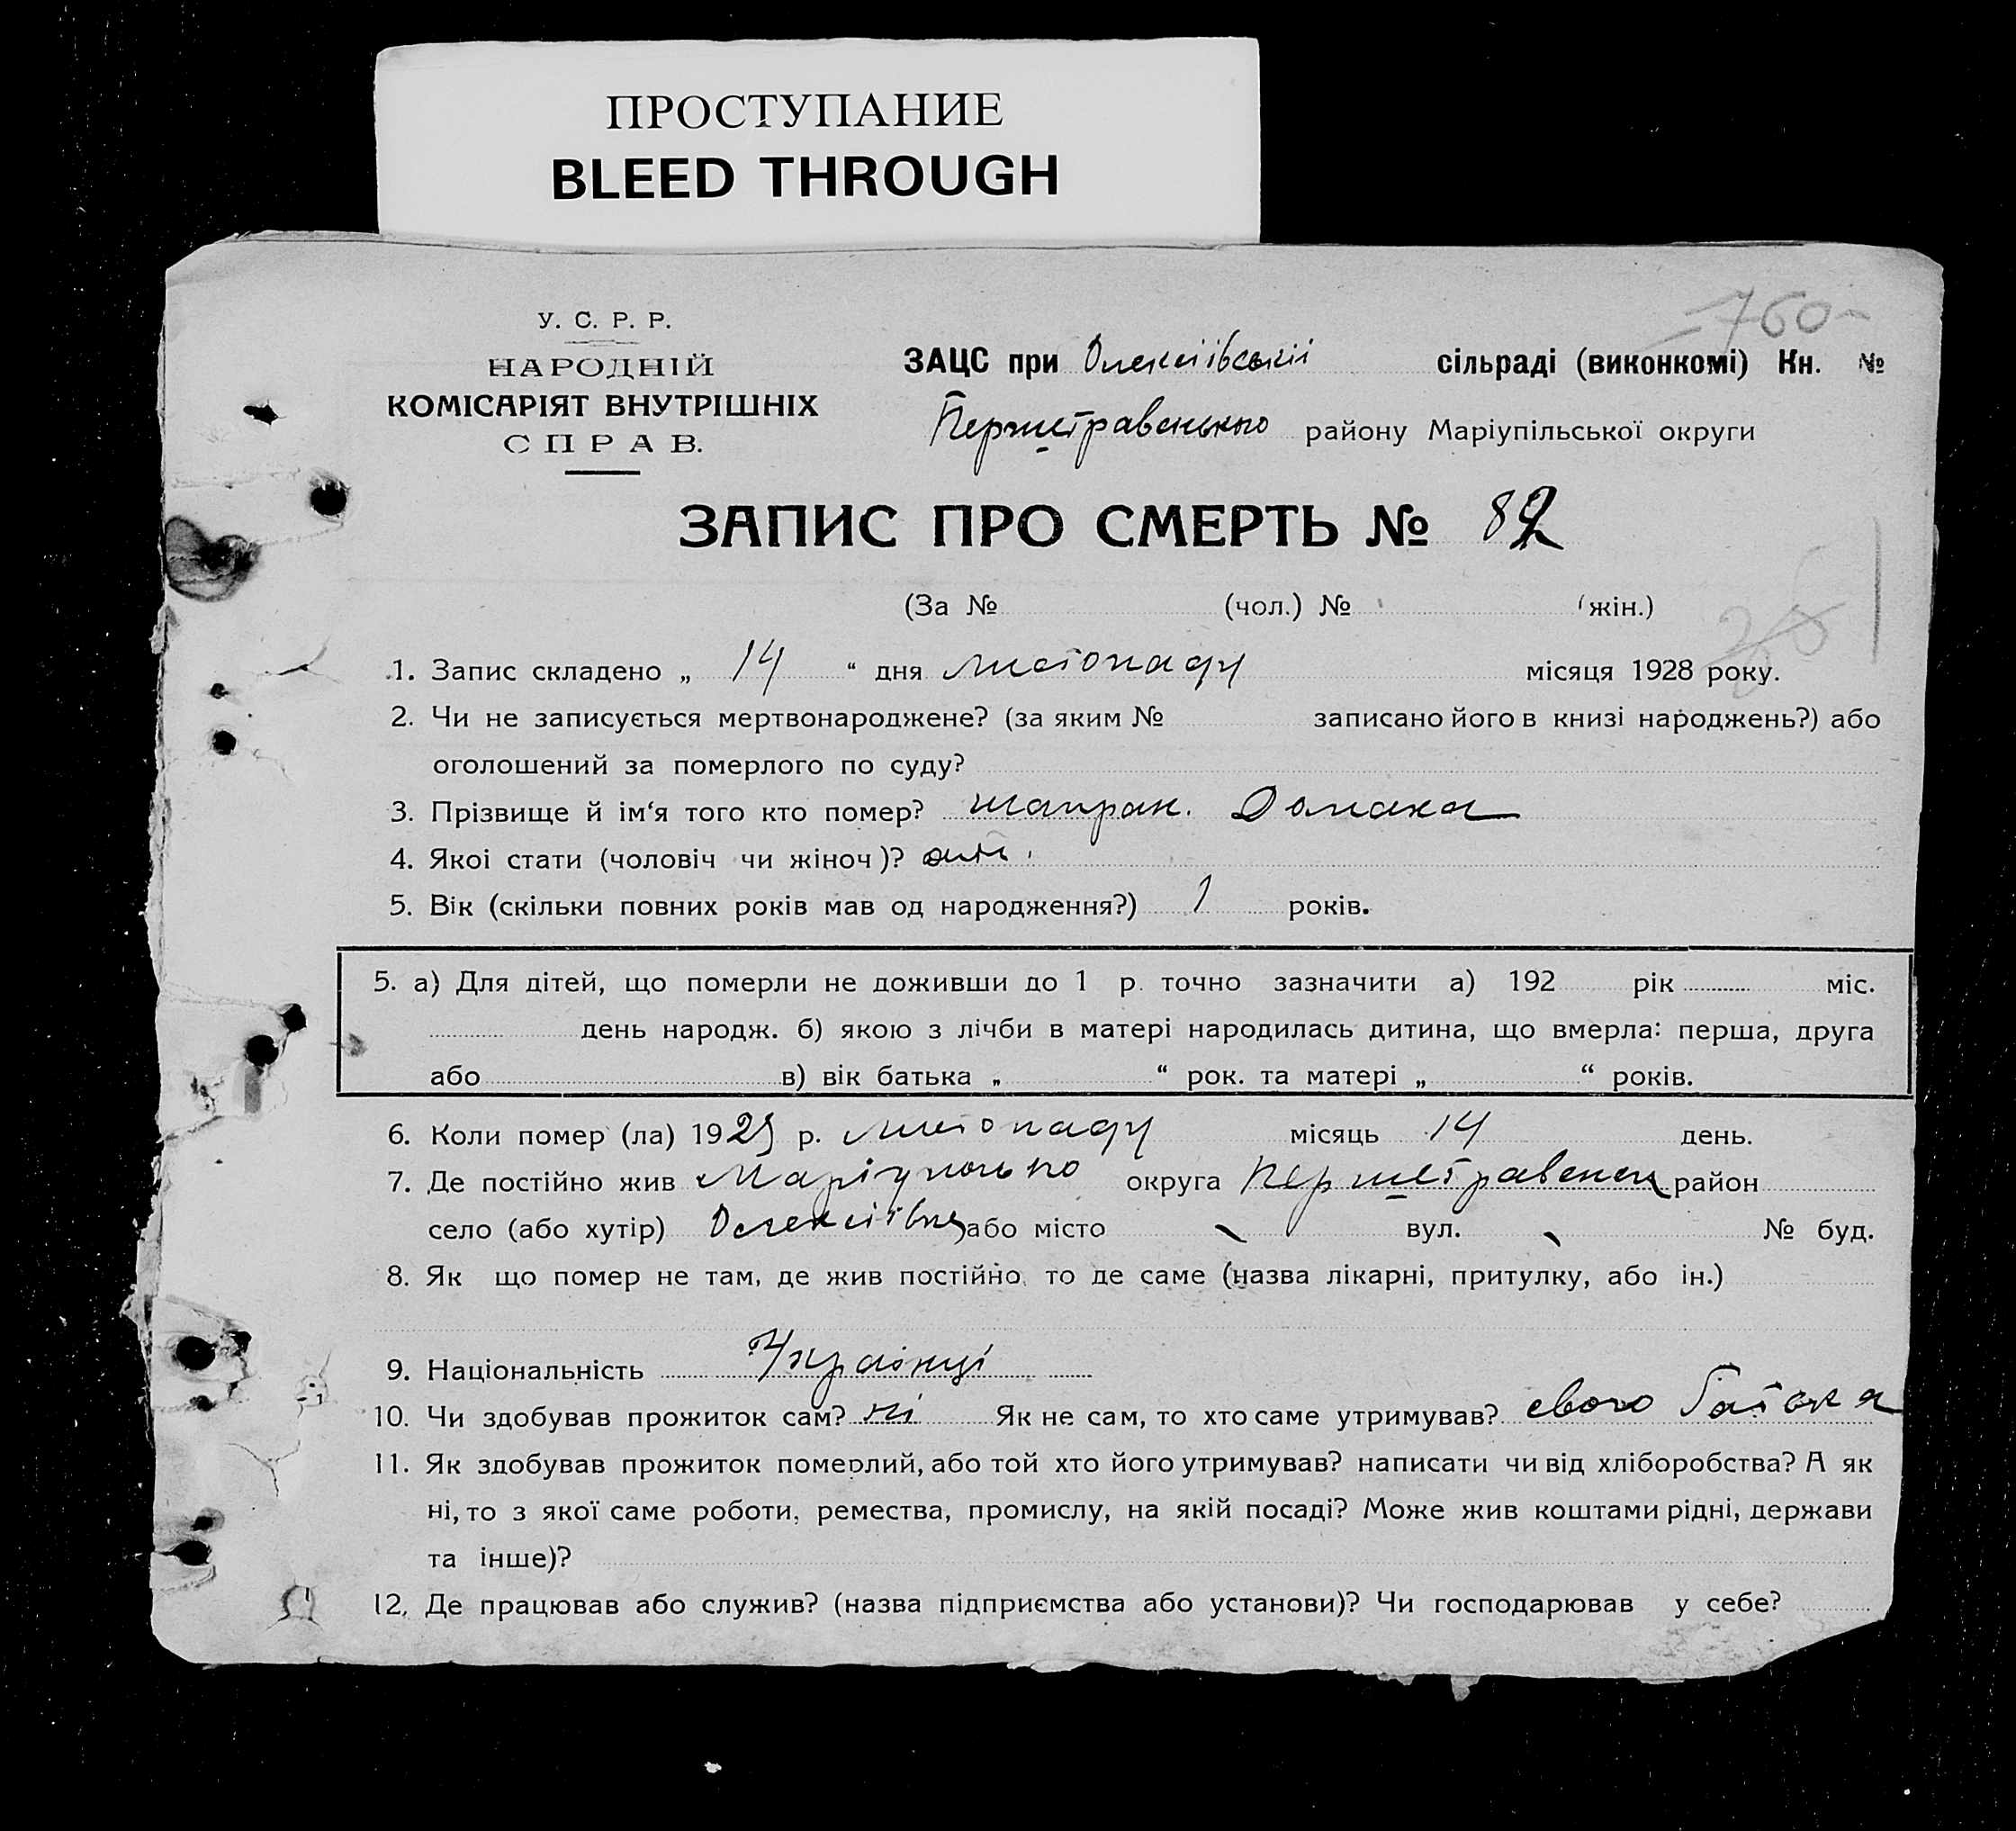 ПРОСТУПАНИЕ
BLEED THROUGH
760
У. С. Р. Р.
НАРОДНІЙ
КОМІСАРІЯТ ВНУТРІШНІХ
СПРАВ.
ЗАЦС при Олексіївській сільраді (виконкомі) Кн. №
Першетравенького району Маріупільської округи
ЗАПИС ПРО СМЕРТЬ № 82
(За № (чол.) № жін.)
1. Запис складено „ 14 “ дня листопаду місяця 1928 року.
2. Чи не записується мертвонароджене? (за яким № записано його в книзі народжень?) або
оголошений за померлого по суду?
3. Прізвище й ім‘я того кто помер? шапран. Домаха
4. Якоі стати (чоловіч чи жіноч)?
5. Вік (скільки повних років мав од народження?) 1 років.
5. а) Для дітей, що померли не доживши до 1 р. точно зазначити а) 192 рік міс.
день народж. б) якою з лічби в матері народилась дитина, що вмерла: перша, друга
або в) вік батька „ “ рок. та матері „ “ років.
6. Коли помер (ла) 1928 р. листопаду місяць 14 день.
7. Де постійно жив округа район
село (або хутір) або місто вул. № буд.
8. Як що помер не там, де жив постійно, то де саме (назва лікарні, притулку, або ін.)
9. Національність Українці
10. Чи здобував прожиток сам? ні Як не сам, то хто саме утримував? свого батька
11. Як здобував прожиток померлий, або той хто його утримував? написати чи від хліборобства? А як
ні, то з якої саме роботи, ремества, промислу, на якій посаді? Може жив коштами рідні, держави
та інше)?
12. Де працював або служив? (назва підприємства або установи)? Чи господарював у себе?